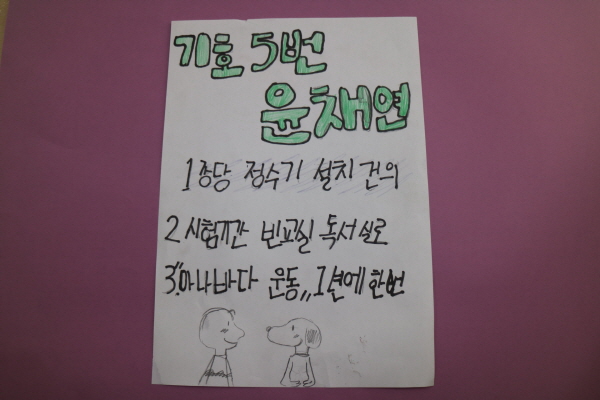 기호 5번
윤채연
1 층당 정수기 설치 건의
2 시험기간 빈교실 독서실로
3."아나바다 운동,, 1년에 한번